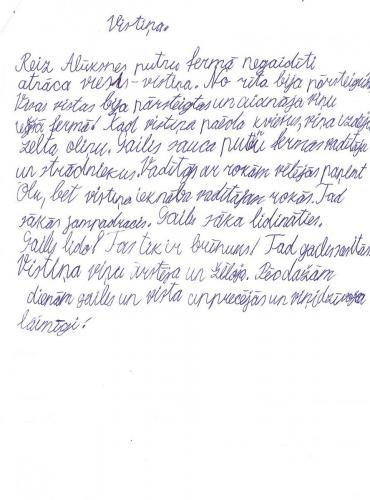 Vistiņa.
Reiz Alūksnes putnu fermā negaidīti
atrāca viesis-vistiņa. No rīta bija pārsteigts
Visas vistas bija pārsteigtas un aicināja viņu
fermā! Kad vistiņa paēda kviešus, viņa izdēja
zelta oliņu. Gailis sauca putnu fermas vadītāju
un strādniekus. Vadītājs ar rokām vēlējās paņemt
Olu, bet vistiņa ieknāba vadītājam rokās. Tad
sākās jampadracis. Gailis sāka lidināties.
Gailis lido! Tas tik ir brīnums! Tad gailis
Vistiņa viņu ārstēja un žēloja. Pēc dažām
dienām gailis un vista apprecējās un viņi dzīvoja
laimīgi!